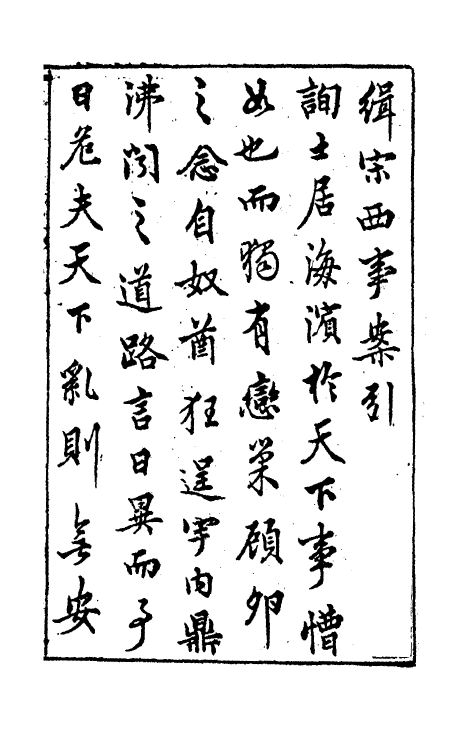 緝宋西事案引
詢士居海濱於天下事懵
如也而獨有戀巢顧卵
之念自奴酋狂逞宇内鼎
沸閱之道路言日異而事
日危夫天下亂則無安